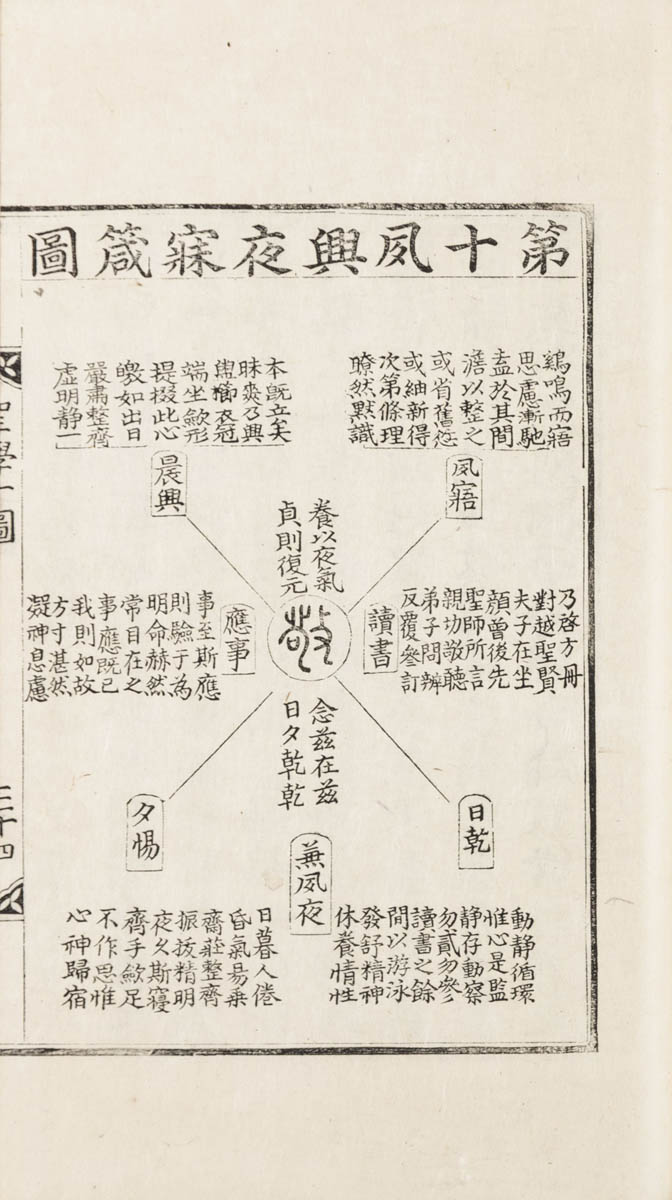 第十夙興夜寐箴圖
鷄鳴而寤
思慮漸馳
盍於其間
澹以整之
或省舊愆
或紬新得
次第條理
瞭然默識
夙寤
本旣立矣
昧爽乃興
盥櫛衣冠
端坐歛形
提掇此心
皦如出日
嚴肅整齊
虛明静一
晨興
養以夜氣
貞則復元
敬
乃啓方冊
對越聖賢
夫子在坐
顔曾後先
聖師所言
親切敬聽
弟子問辨
反覆參訂
讀書
應事
事至斯應
則驗于為
明命赫然
常目在之
事應旣已
我則如故
方寸湛然
凝神息慮
念兹在兹
日夕乾乾
日乾
動静循環
惟心是監
静存動察
勿貳勿參
讀書之餘
間以游泳
發舒精神
休養情性
兼夙夜
夕惕
日暮人倦
昏氣易乗
齋莊整齊
振拔精明
夜久斯寢
齊手歛足
不作思惟
心神歸宿
聖學十圖
三十四